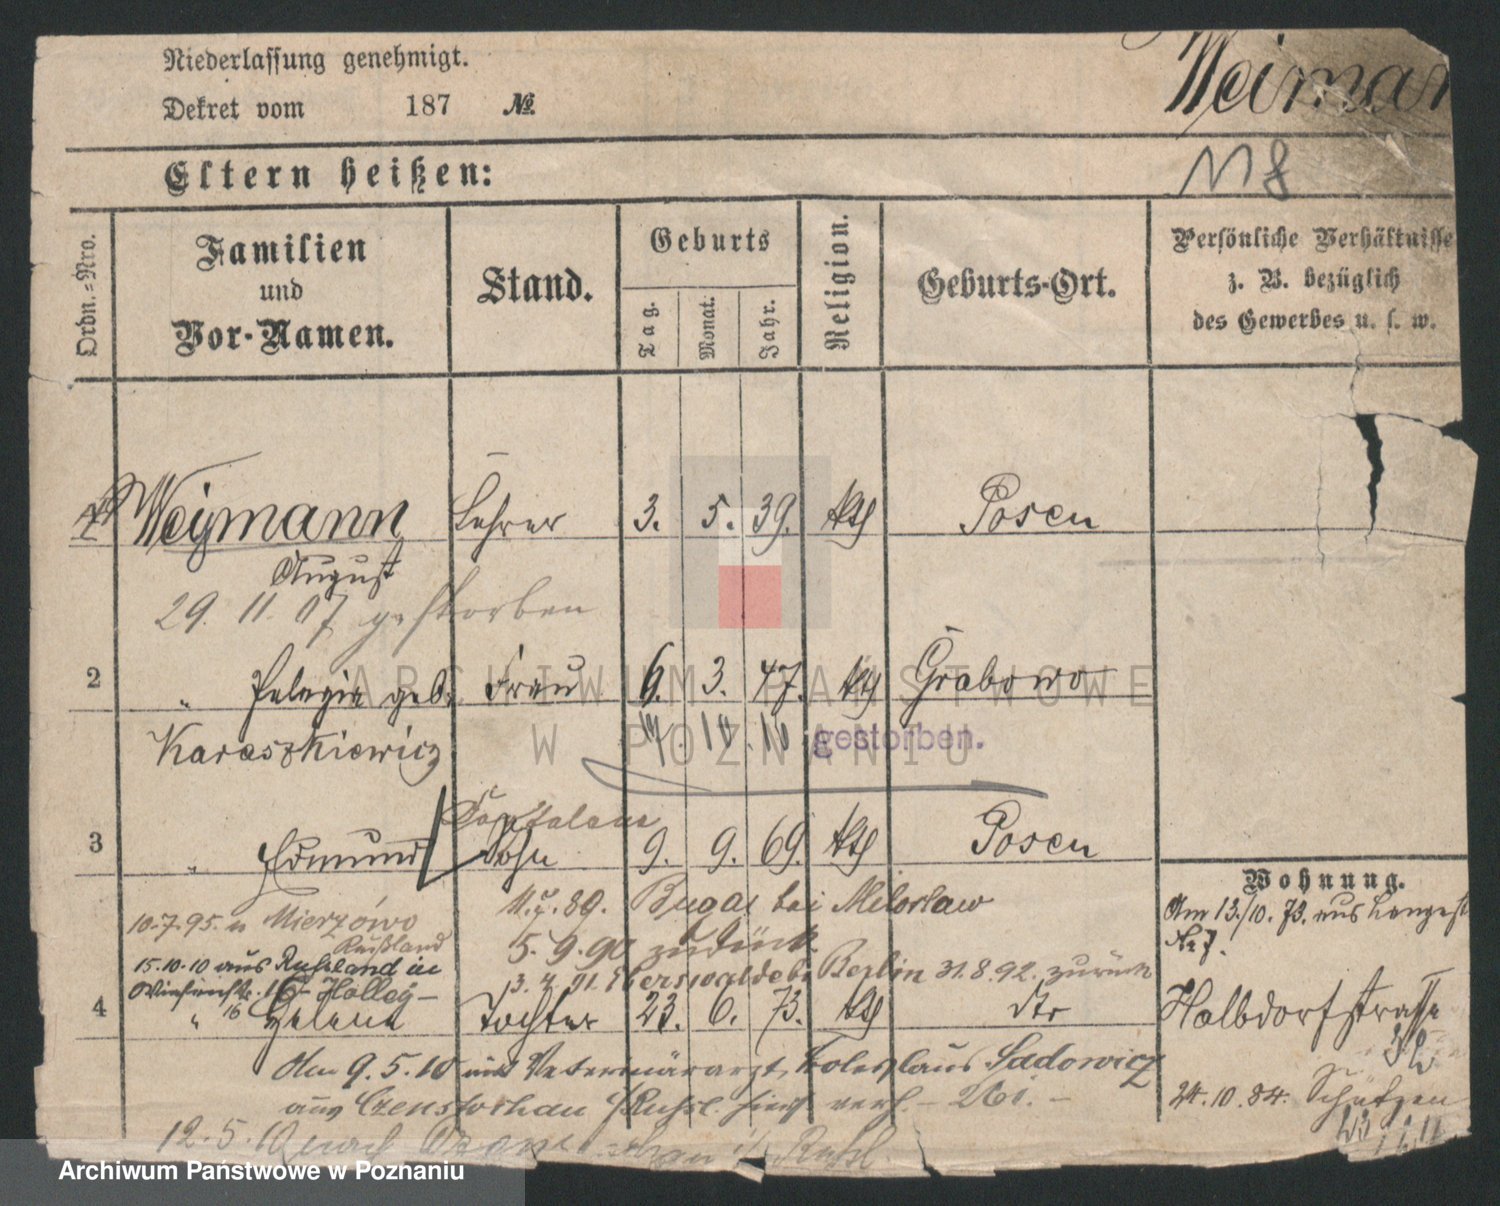 Niederlassung genehmigt.
Dekret vom 187 №
Weiman
Eltern heißen:
Ordn.=Nro.
Familien
und
Vor-Namen.
Stand.
Geburts
Tag.
Monat.
Jahr.
Religion.
Geburts-Ort.
Persönliche Verhältnisse
z. B. bezüglich
des Gewerbes u. s. w.
Weymann Lehrer 3. 5. 39. kth Posen
August
29. 11. 07 gestorben
2 " Pelagia geb. Frau 6. 3. 47. kth Grabowo
Karaszkiewicz 17. 10. 10 gestorben.
3 " Edmund Sohn 9. 9. 69. kth Posen
Wohnung.
Am 13./10. 73. aus
89. Bugaj bei Miloslaw
10.7.95. n Mierzowo
Russland
5. 9. 90 zurück
15.10.10 aus Russland in
3. 4. 91. Eberswalde b. Berlin 31.8.92. zurück
4 " Helene Tochter 23. 6. 73. kth dto
Halbdorfstrasse
32
Am 9.5.10 mit Veterinärarzt Boleslaus Sadowicz
aus Czenstochau i/Russl. hier verh. – 261. –
24.10.84. Schützen
12.5.10 nach Czenstochau i/ Russl.
ARCHIWUM PAŃSTWOWE
W POZNANIU
Archiwum Państwowe w Poznaniu